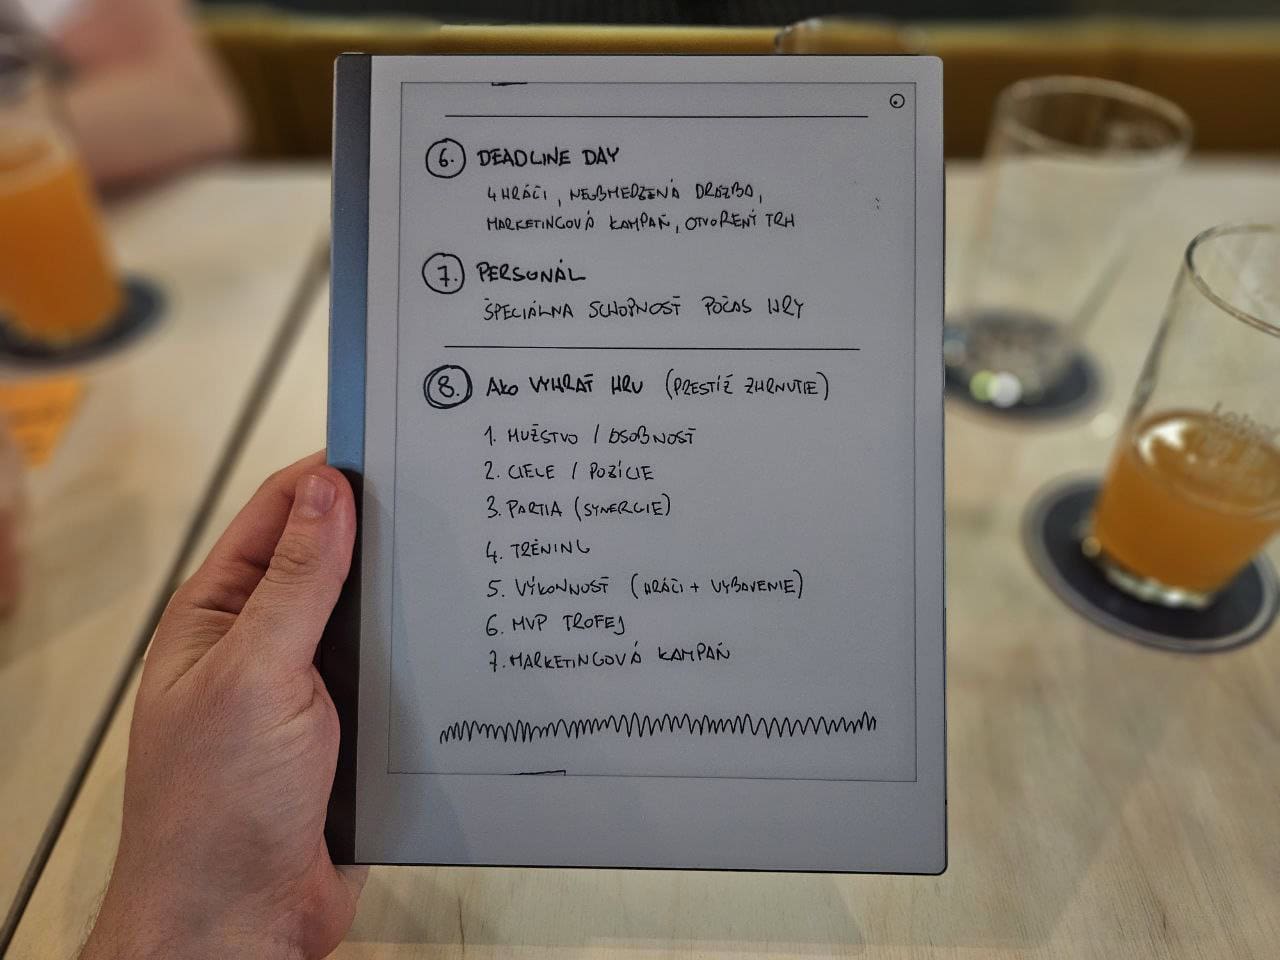 6. DEADLINE DAY
4 HRÁČI, NEOBMEDZENÁ DRAŽBA,
MARKETINGOVÁ KAMPAŇ, OTVORENÝ TRH
7. PERSONÁL
ŠPECIÁLNA SCHOPNOSŤ POČAS HRY
8. AKO VYHRAŤ HRU (PRESTÍŽ ZHRNUTIE)
1. MUŽSTVO / OSOBNOSŤ
2. CIELE / POZÍCIE
3. PARTIA (SYNERGIE)
4. TRÉNING
5. VÝKONNOSŤ (HRÁČI + VYBAVENIE)
6. MVP TROFEJ
7. MARKETINGOVÁ KAMPAŇ